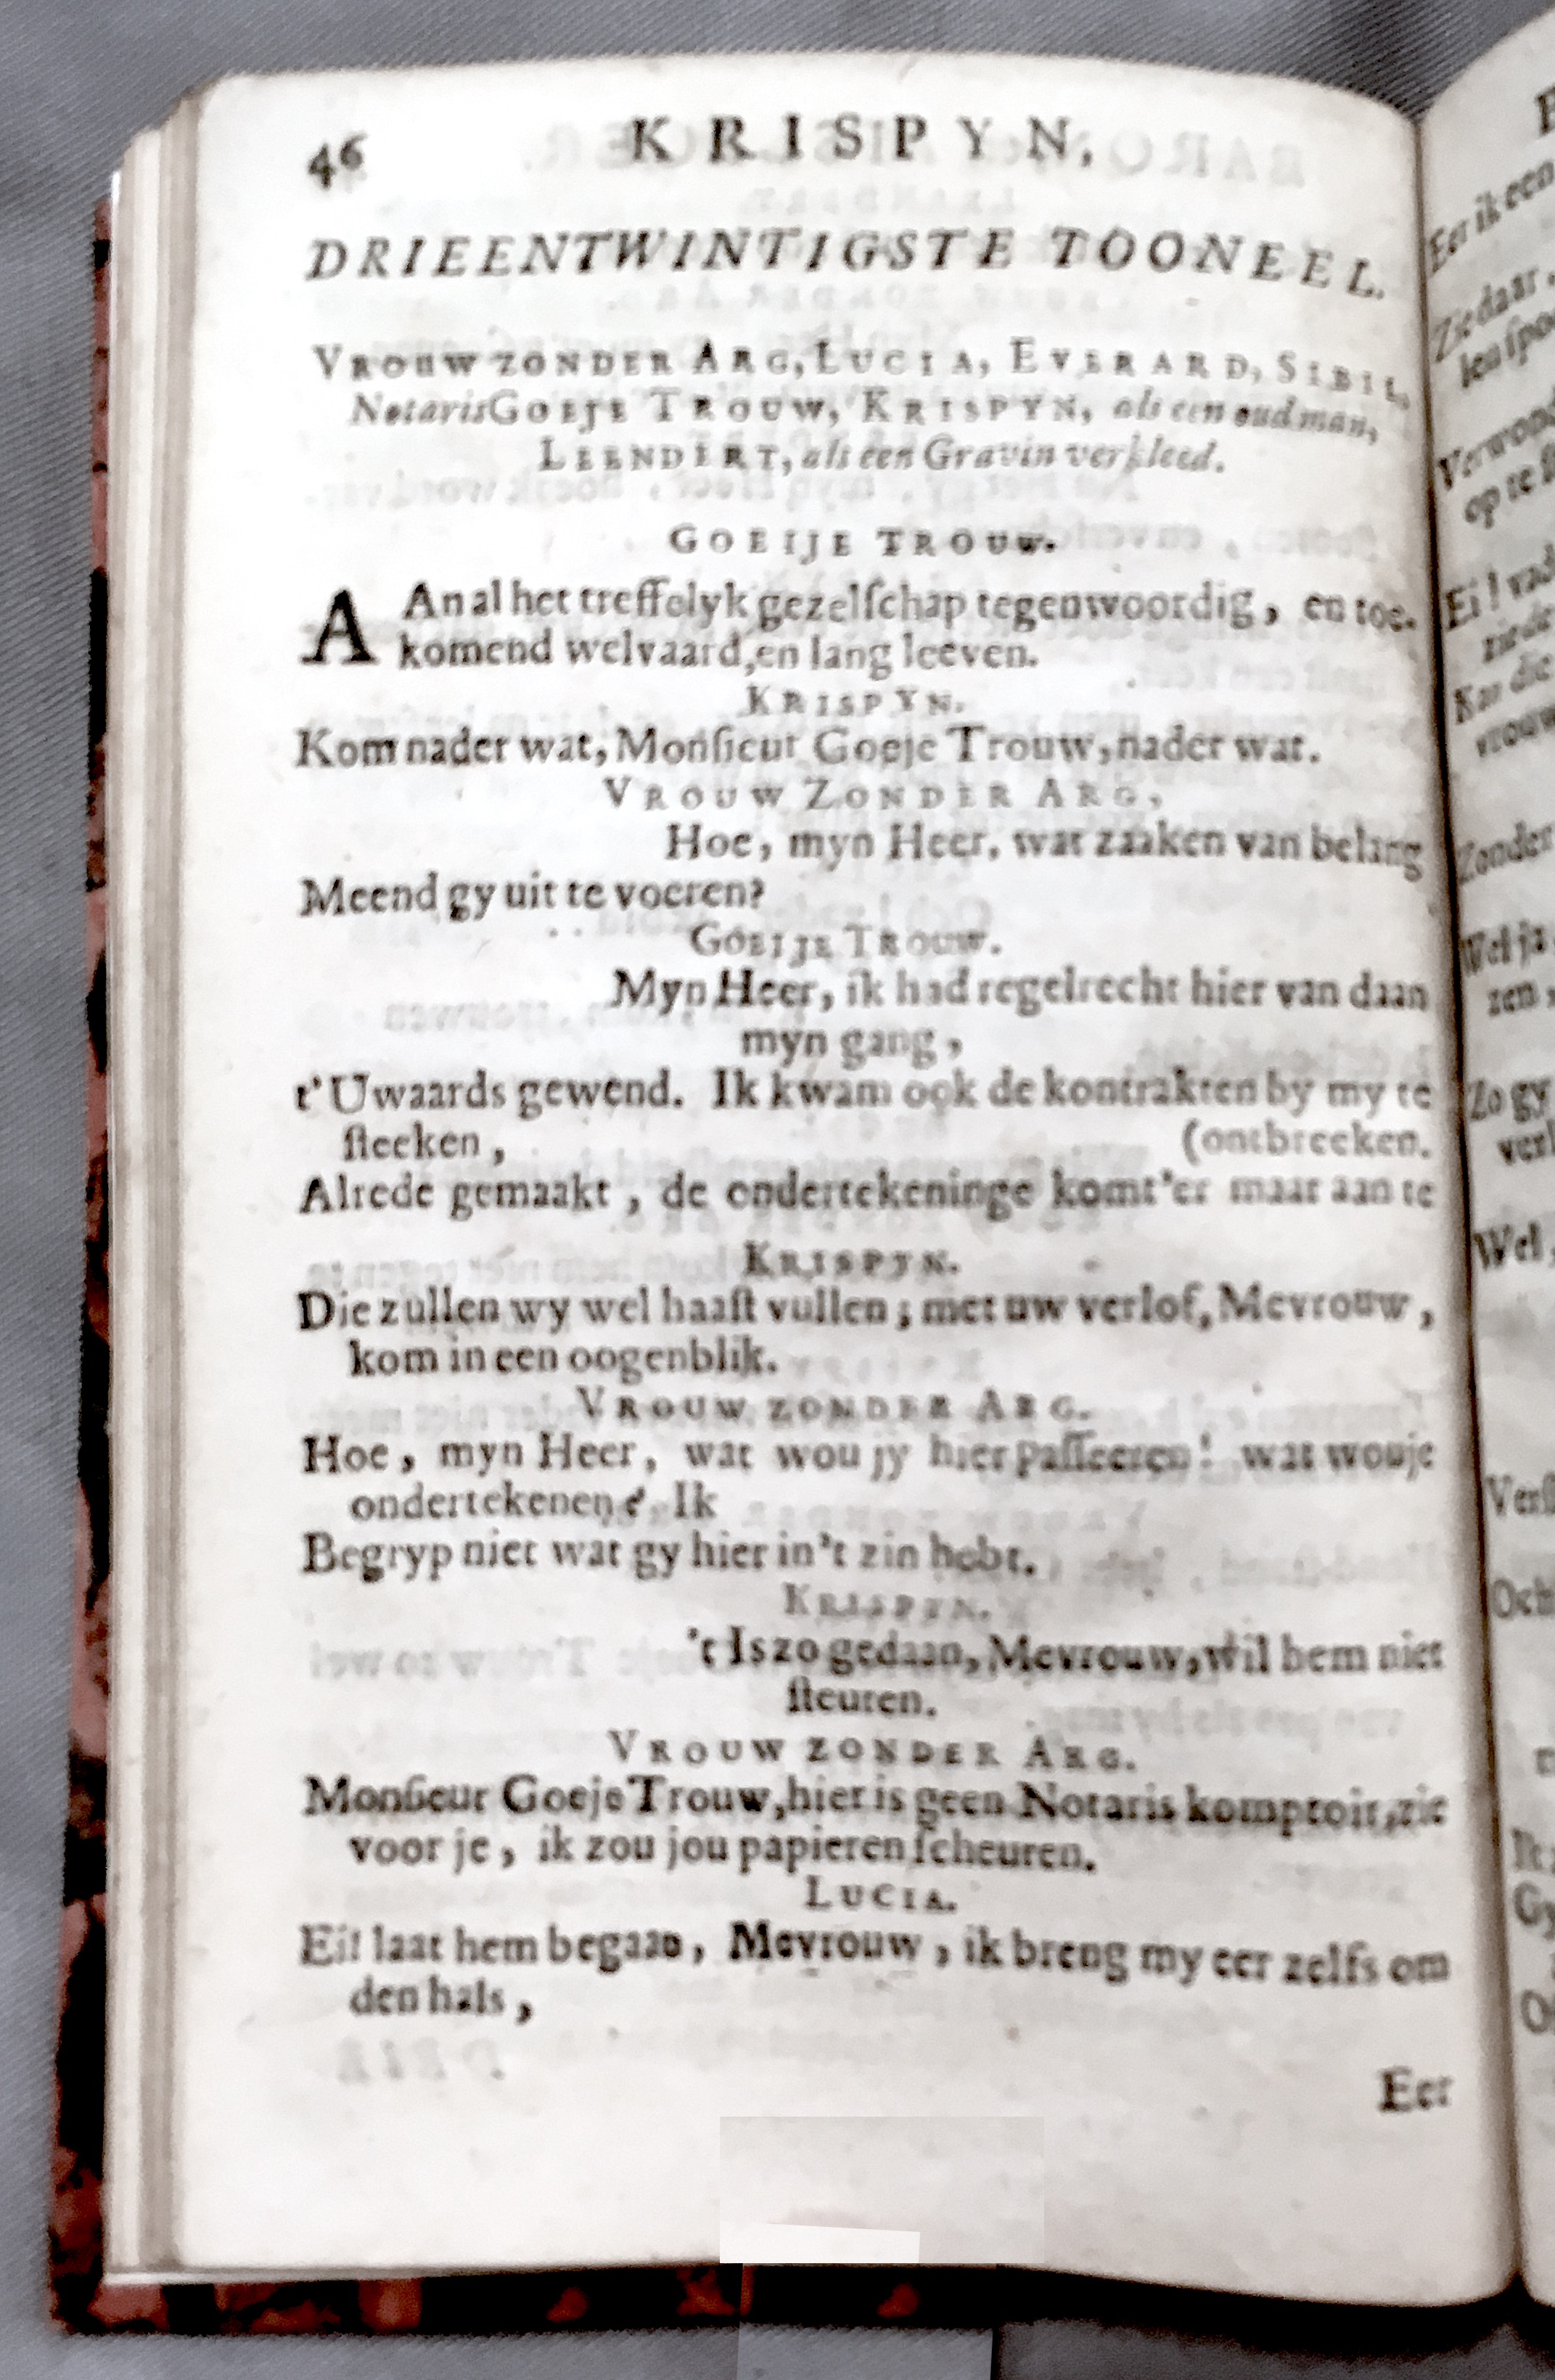 46 KRISPYN,
DRIEENTWINTIGSTE TOONEEL.
VROUW ZONDER ARG, LUCIA, EVERARD, SIBIL,
Notaris GOEIJE TROUW, KRISPYN, als een oud man,
LEENDERT, als een Gravin verkleed.
GOEIJE TROUW.
AAn al het treffelyk gezelſchap tegenwoordig, en toe-
komend welvaard, en lang leeven.
KRISPYN.
Kom nader wat, Monſieur Goeje Trouw, nader wat.
VROUW ZONDER ARG,
Hoe, myn Heer, wat zaaken van belang
Meend gy uit te voeren?
GOEIJE TROUW.
Myn Heer, ik had regelrecht hier van daan
myn gang,
t'Uwaards gewend. Ik kwam ook de kontrakten by my te
ſteeken, (ontbreeken.
Alrede gemaakt, de ondertekeninge komt'er maar aan te
KRISPYN.
Die zullen wy wel haaſt vullen; met uw verlof, Mevrouw,
kom in een oogenblik.
VROUW ZONDER ARG.
Hoe, myn Heer, wat wou jy hier paſſeeren! wat wouje
ondertekenen? Ik
Begryp niet wat gy hier in't zin hebt.
KRISPYN.
't Is zo gedaan, Mevrouw, wil hem niet
ſteuren.
VROUW ZONDER ARG.
Monſieur Goeje Trouw, hier is geen Notaris komptoir, zie
voor je, ik zou jou papieren ſcheuren.
LUCIA.
Ei! laat hem begaan, Mevrouw, ik breng my eer zelfs om
den hals,
Eer